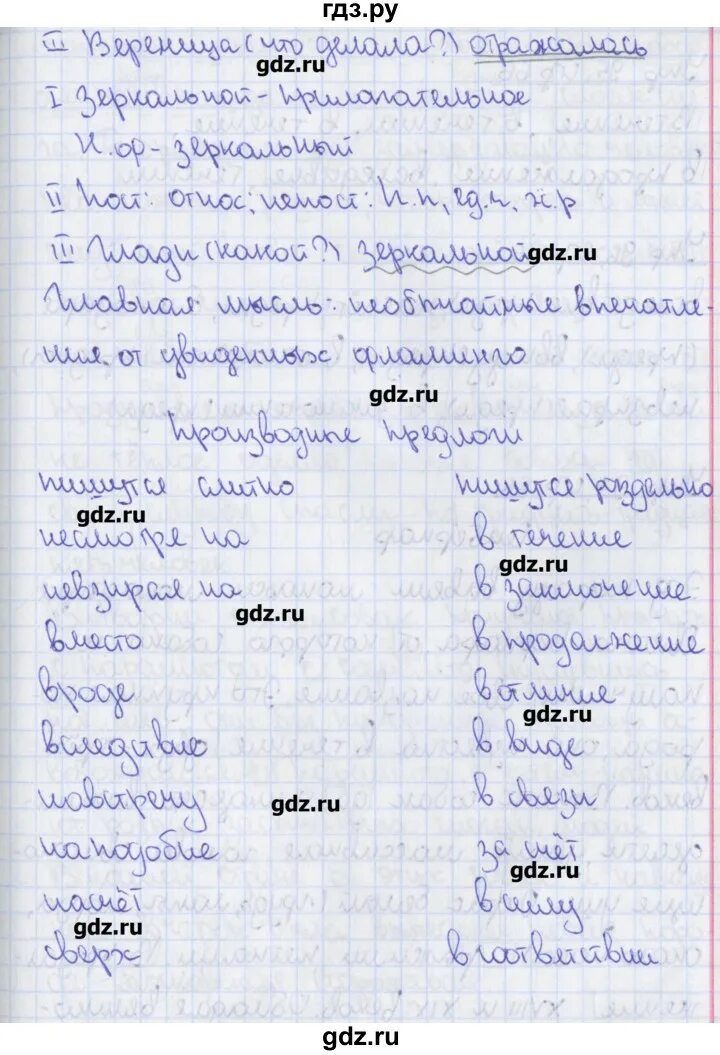 гдз.ру
III Вереница (что делала?) отражалась
gdz.ru
I Зеркальной - прилагательное
Н.ф - зеркальный
II Пост: относ; непост: П.п, ед.ч, ж.р
III Глади (какой?) зеркальной gdz.ru
Главная мысль: необычайные впечатле-
ния от увиденных фламинго
gdz.ru
Производные предлоги
пишутся слитно пишутся раздельно
gdz.ru
несмотря на в течение
gdz.ru
невзирая на в заключение
gdz.ru
вместо в продолжение
вроде в отличие
gdz.ru
вследствие в виде
навстречу gdz.ru в связи
наподобие за счёт
gdz.ru
насчёт в силу
gdz.ru
сверх в соответствии
gdz.ru